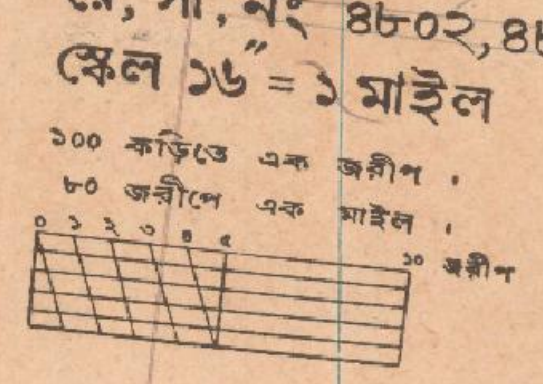 রে, সা, নং ৪৮০২, ৪৮
স্কেল ১৬" = ১ মাইল
১০০ কড়িতে এক জরীপ ।
৮০ জরীপে এক মাইল ।
০ ১ ২ ৩ ৪ ৫ ১০ জরীপ